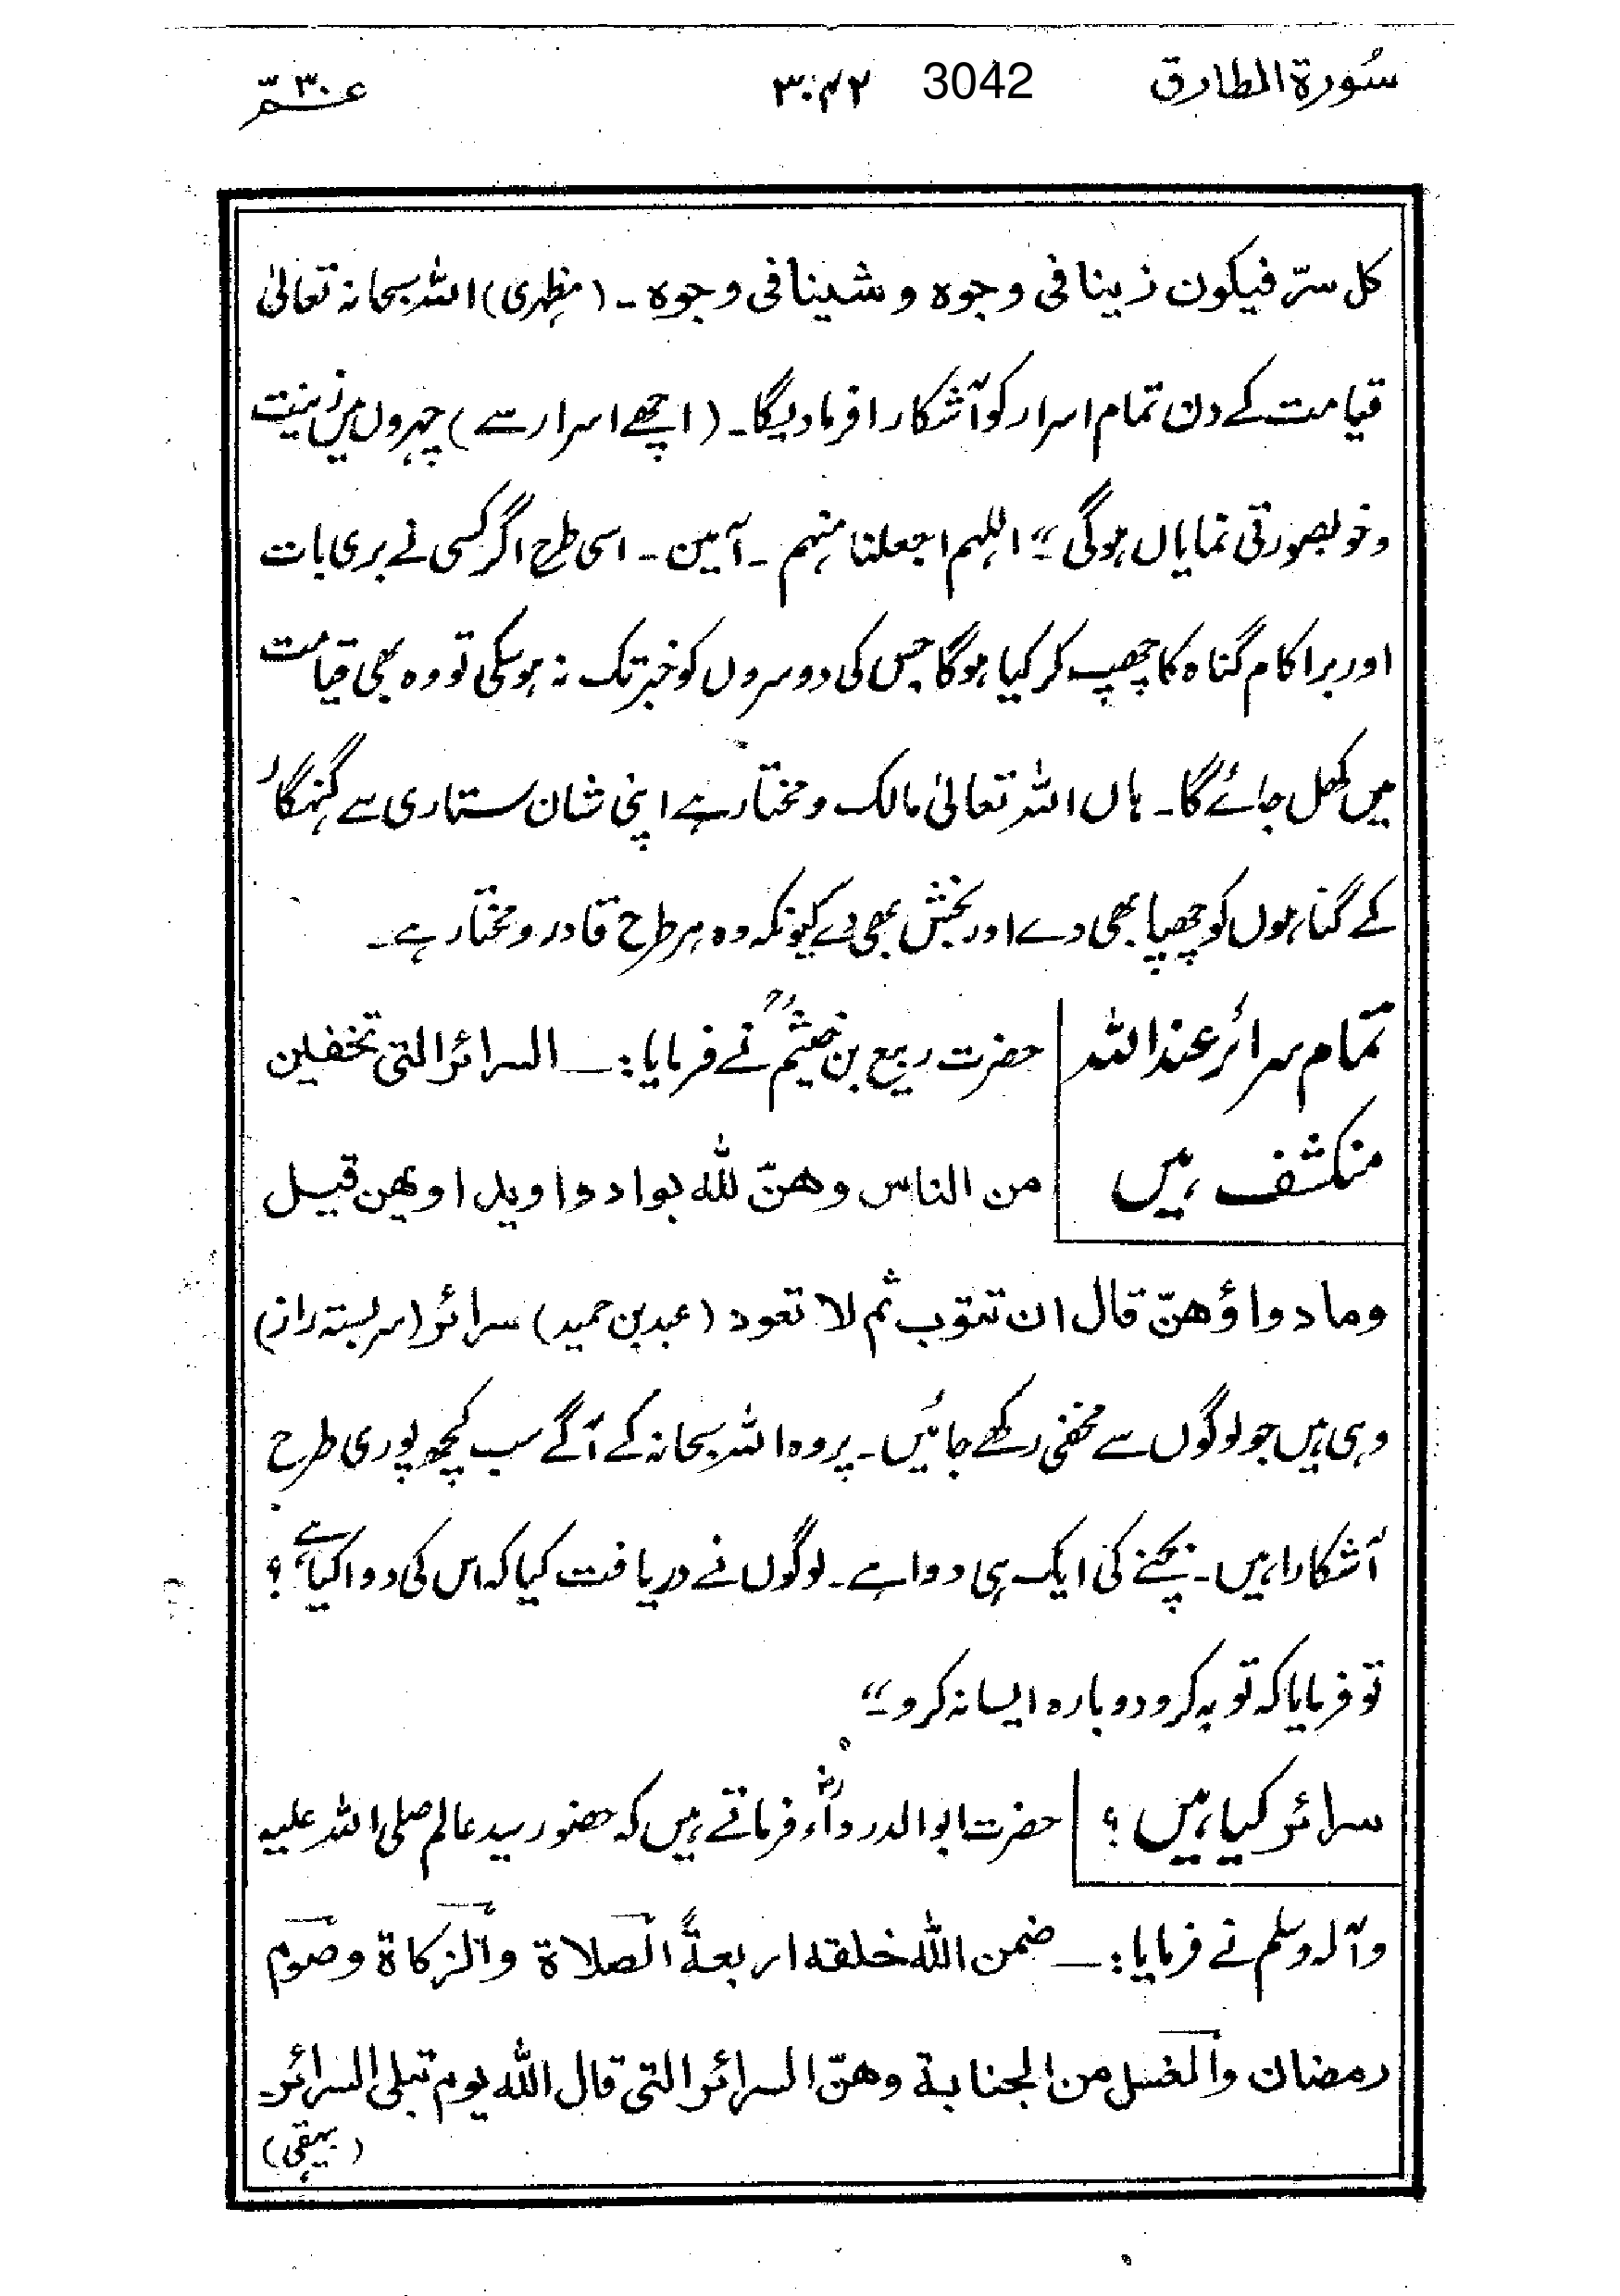 سُورة الطارق 3042 ۳۰۴۲ عمّ ۳۰
کل سرّ فیکون زینا فی وجوہ و شینا فی وجوہ ۔ (مظہری) اللہ سبحانہ تعالیٰ
قیامت کے دن تمام اسرار کو آشکارا فرما دیگا۔ (اچھے اسرار سے) چہروں میں زینت
و خوبصورتی نمایاں ہوگی ۔" اللہم اجعلنا منہم ۔ آمین ۔ اسی طرح اگر کسی نے بری بات
اور برا کام گناہ کا چھپ کر کیا ہوگا جس کی دوسروں کو خبر تک نہ ہوسکی تو وہ بھی قیامت
میں کھل جائے گا۔ ہاں اللہ تعالیٰ مالک و مختار ہے اپنی شان ستاری سے گنہگار
کے گناہوں کو چھپا بھی دے اور بخش بھی دے کیونکہ وہ ہر طرح قادر و مختار ہے ۔
تمام سرائر عند اللہ حضرت ربیع بن خثیمؒ نے فرمایا :۔ السرائر التی تخفین
منکشف ہیں من الناس وھنّ للہ بواد دوا ویدا اوبھن قیل
وما دواؤھنّ قال ان تتوب ثم لا تعود (عبد بن حمید) سرائر (سربستہ راز)
وہی ہیں جو لوگوں سے مخفی رکھے جائیں ۔ پر وہ اللہ سبحانہ کے آگے سب کچھ پوری طرح
آشکارا ہیں ۔ بچنے کی ایک ہی دوا ہے ۔ لوگوں نے دریافت کیا کہ اس کی دوا کیا ہے ؟
تو فرمایا کہ توبہ کرو دوبارہ ایسا نہ کرو ۔"
سرائر کیا ہیں ؟ حضرت ابو الدرداءؓ فرماتے ہیں کہ حضور سید عالم صلی اللہ علیہ
وآلہ وسلم نے فرمایا :۔ ضمن اللہ خلقہ اربعةً الصلاة والزکاة وصوم
رمضان والغسل من الجنابة وھنّ السرائر التی قال اللہ یوم تبلی السرائر۔
(بیہقی)